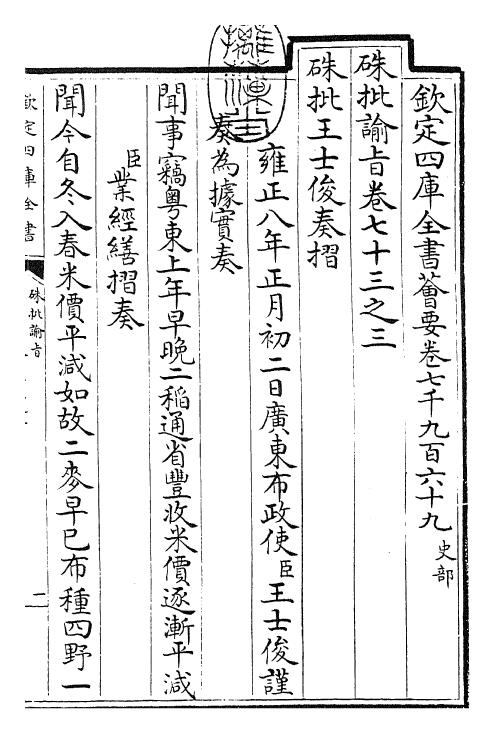 欽定四庫全書薈要卷七千九百六十九 史部
硃批諭旨卷七十三之三
硃批王士俊奏摺
雍正八年正月初二日廣東布政使臣王士俊謹
奏為據實奏
聞事竊粵東上年早晚二稻通省豐收米價逐漸平減
臣業經繕摺奏
聞今自冬入春米價平減如故二麥早已布種四野一
欽定四庫全書
硃批諭旨
二